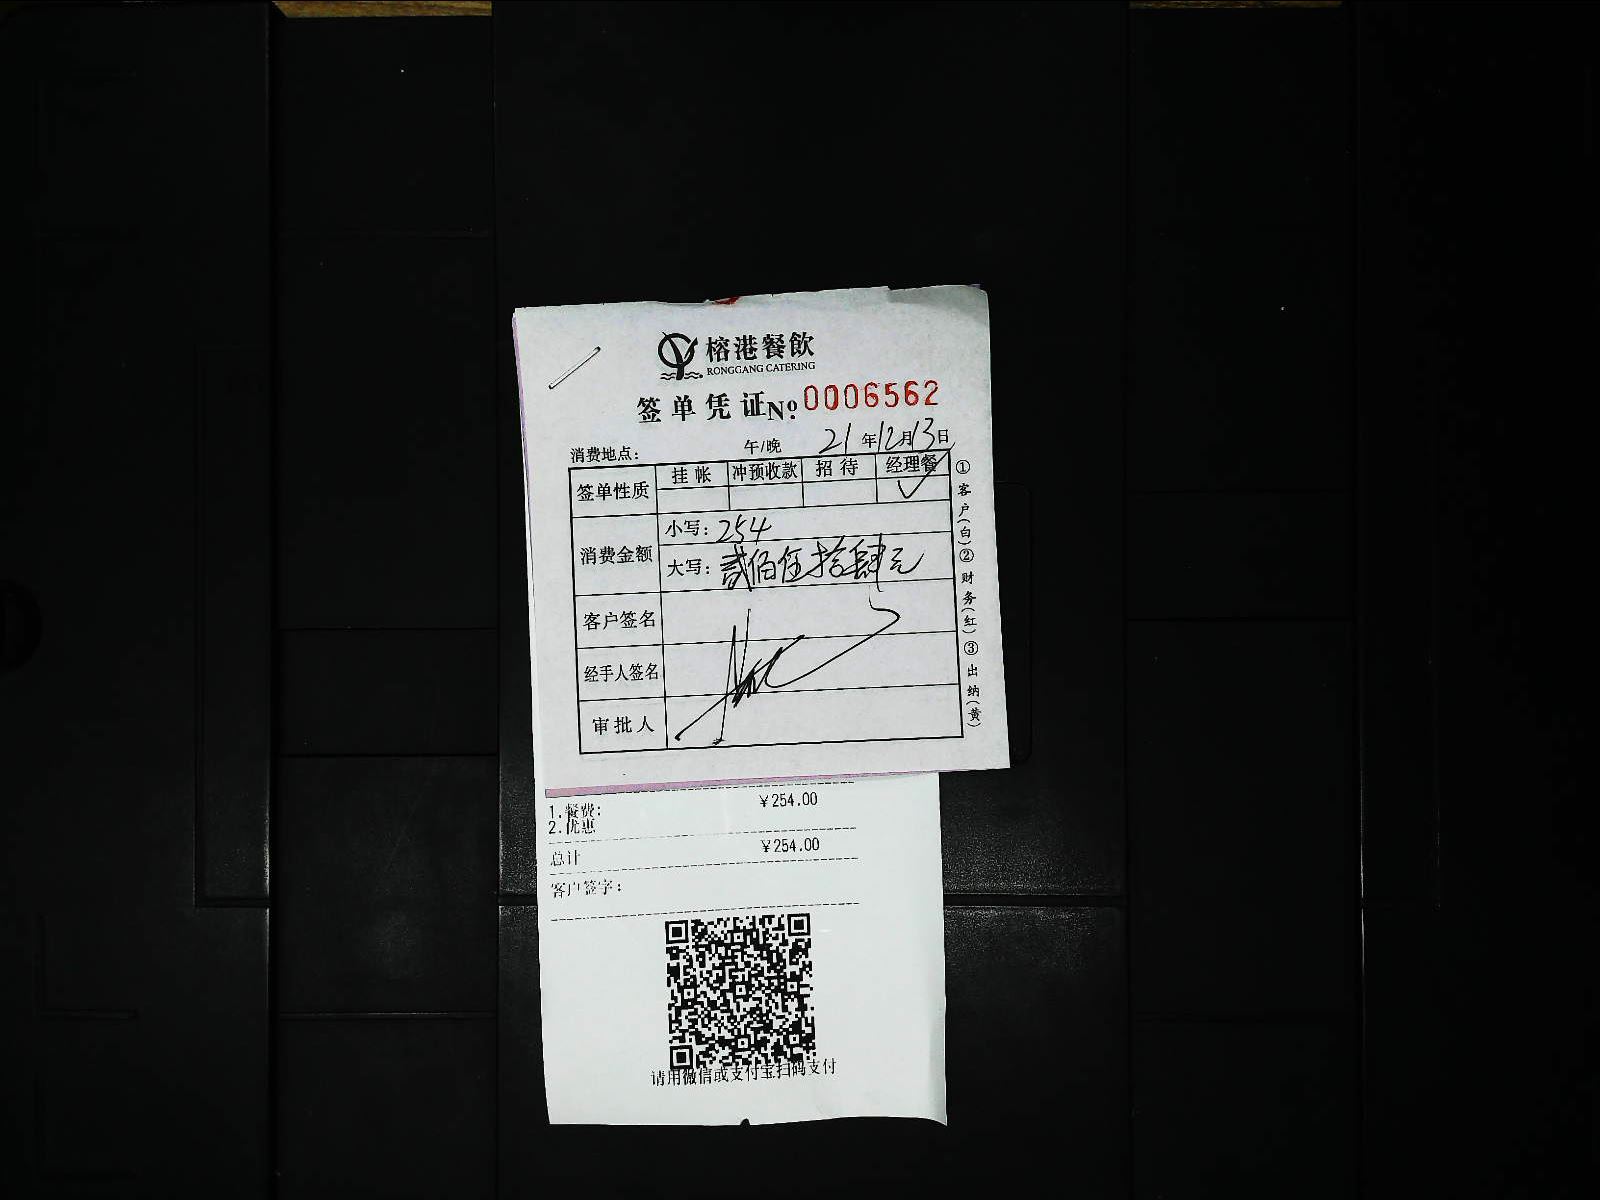 榕港餐飲
RONGGANG CATERING
签单凭证 No. 0006562
消费地点： 午/晚 21年12月13日
签单性质 挂帐 冲预收款 招待 经理餐
✓
消费金额 小写：254
大写：贰佰伍拾肆元
客户签名
经手人签名
审批人
①客户(白)②财务(红)③出纳(黄)
1.餐费: ￥254.00
2.优惠
总计 ￥254.00
客户签字：
请用微信或支付宝扫码支付